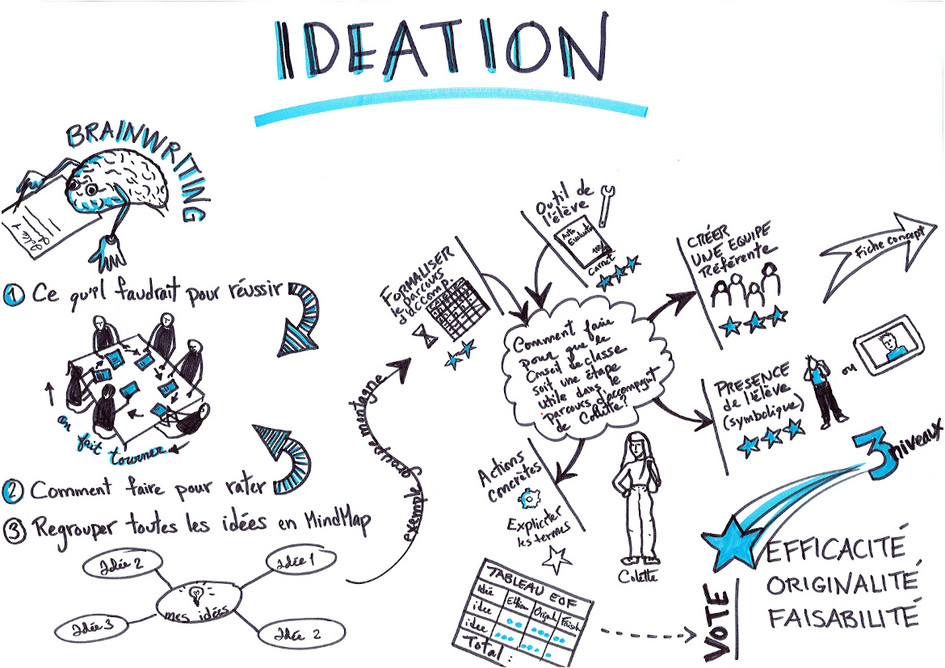 IDEATION
BRAINWRITING
1 Ce qu'il faudrait pour réussir
on fait tourner
2 Comment faire pour rater
3 Regrouper toutes les idées en MindMap
Idée 2
Idée 1
mes idées
Idée 3
Idée 2
exemple groupe montagne
FORMALISER
le parcours
d'accomp
Outil de
l'élève
Auto
Evaluat
carnet
CRÉER
UNE EQUIPE
Référente
Fiche concept
Comment faire
pour que le
Conseil de classe
soit une étape
utile dans le
parcours d'accompagnt
de Colette?
PRESENCE
de l'élève
(symbolique)
ou
Actions
concrètes
Expliciter
les termes
Colette
3 niveaux
TABLEAU EOF
idée
Effica
Origin
Faisab
idee
idee
Total:
VOTE
EFFICACITÉ
ORIGINALITÉ
FAISABILITÉ